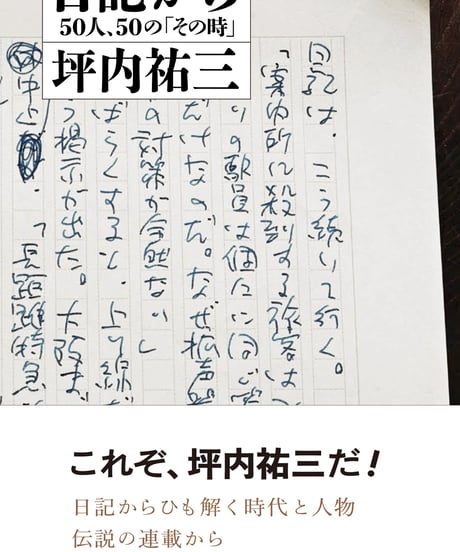 日記から
50人、50の「その時」
坪内祐三
日記は、こう続いて行く。
「案内所に殺到する旅客は
りの駅員は個々に同じ
だけなのだ。なぜ拡声
の対策が全然ない」
ばらくすると、上り線
う掲示が出た。大阪ま
中止。「長距離特急
これぞ、坪内祐三だ!
日記からひも解く時代と人物
伝説の連載から